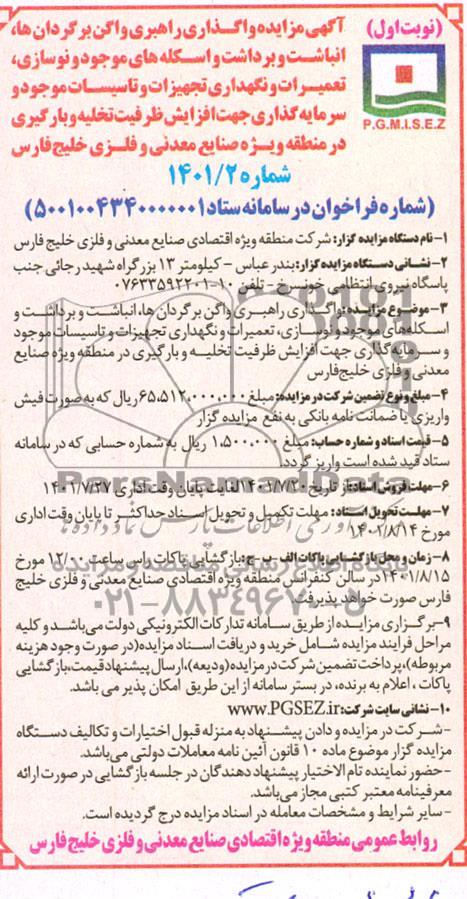 (نوبت اول)
P.G.M.I.S.E.Z
آگهی مزایده واگذاری راهبری واگن برگردان ها،
انباشت و برداشت و اسکله های موجود و نوسازی،
تعمیرات و نگهداری تجهیزات و تاسیسات موجود و
سرمایه گذاری جهت افزایش ظرفیت تخلیه و بارگیری
در منطقه ویژه صنایع معدنی و فلزی خلیج فارس
شماره ۱۴۰۱/۲
(شماره فراخوان در سامانه ستاد ۵۰۰۱۰۰۴۳۴۰۰۰۰۰۰۱)
۱-نام دستگاه مزایده گزار: شرکت منطقه ویژه اقتصادی صنایع معدنی و فلزی خلیج فارس
۲- نشانی دستگاه مزایده گزار: بندرعباس - کیلومتر ۱۳ بزرگراه شهید رجائی جنب
پاسگاه نیروی انتظامی خونسرخ - تلفن ۱۰-۰۷۶۳۳۵۹۲۲۰۱
۳-موضوع مزایده: واگذاری راهبری واگن برگردان ها، انباشت و برداشت و
اسکله‌های موجود و نوسازی، تعمیرات و نگهداری تجهیزات و تاسیسات موجود
و سرمایه گذاری جهت افزایش ظرفیت تخلیه و بارگیری در منطقه ویژه صنایع
معدنی و فلزی خلیج‌فارس
۴- مبلغ و نوع تضمین شرکت در مزایده: مبلغ ۶۵،۵۱۲،۰۰۰،۰۰۰ ریال که به صورت فیش
واریزی یا ضمانت نامه بانکی به نفع مزایده گزار
۵- قیمت اسناد و شماره حساب: مبلغ ۱،۵۰۰،۰۰۰ ریال به شماره حسابی که در سامانه
ستاد قید شده است واریز گردد.
۶- مهلت فروش اسناد: از تاریخ ۱۴۰۱/۷/۲۰ لغایت پایان وقت اداری ۱۴۰۱/۷/۲۷
۷- مهلت تحویل اسناد: مهلت تکمیل و تحویل اسناد حداکثر تا پایان وقت اداری
مورخ ۱۴۰۱/۸/۱۴
۸- زمان و محل بازگشایی پاکات الف - ب - ج: بازگشایی پاکات راس ساعت ۱۲/۰۰ مورخ
۱۴۰۱/۸/۱۵ در سالن کنفرانس منطقه ویژه اقتصادی صنایع معدنی و فلزی خلیج
فارس صورت خواهد پذیرفت.
۹-برگزاری مزایده از طریق سامانه تدارکات الکترونیکی دولت می‌باشد و کلیه
مراحل فرایند مزایده شامل خرید و دریافت اسناد مزایده(در صورت وجود هزینه
مربوطه)،پرداخت تضمین شرکت در مزایده (ودیعه)،ارسال پیشنهاد قیمت،بازگشایی
پاکات ، اعلام به برنده، در بستر سامانه از این طریق امکان پذیر می باشد.
۱۰- نشانی سایت شرکت: www.PGSEZ.ir
-شرکت در مزایده و دادن پیشنهاد به منزله قبول اختیارات و تکالیف دستگاه
مزایده گزار موضوع ماده ۱۰ قانون آئین نامه معاملات دولتی می‌باشد.
-حضور نماینده تام الاختیار پیشنهاد دهندگان در جلسه بازگشایی در صورت ارائه
معرفینامه معتبر کتبی مجاز می‌باشد.
- سایر شرایط و مشخصات معامله در اسناد مزایده درج گردیده است.
روابط عمومی منطقه ویژه اقتصادی صنایع معدنی و فلزی خلیج فارس
ParsNamadData
۰۲۱-۸۸۳۴۹۶۷۰-۵